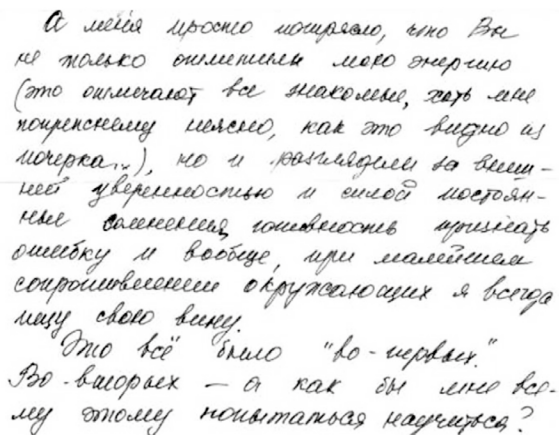 А меня просто потрясло, что Вы
не только отметили мою энергию
(это отмечают все знакомые, хоть мне
попрежнему неясно, как это видно из
почерка...), но и разглядели за внеш-
ней уверенностью и силой постоян-
ные сомнения, готовность признать
ошибку и вообще, при малейшем
сопротивлении окружающих я всегда
ищу свою вину.
Это всё было "во-первых".
Во-вторых — а как бы мне все-
му этому попытаться научиться?